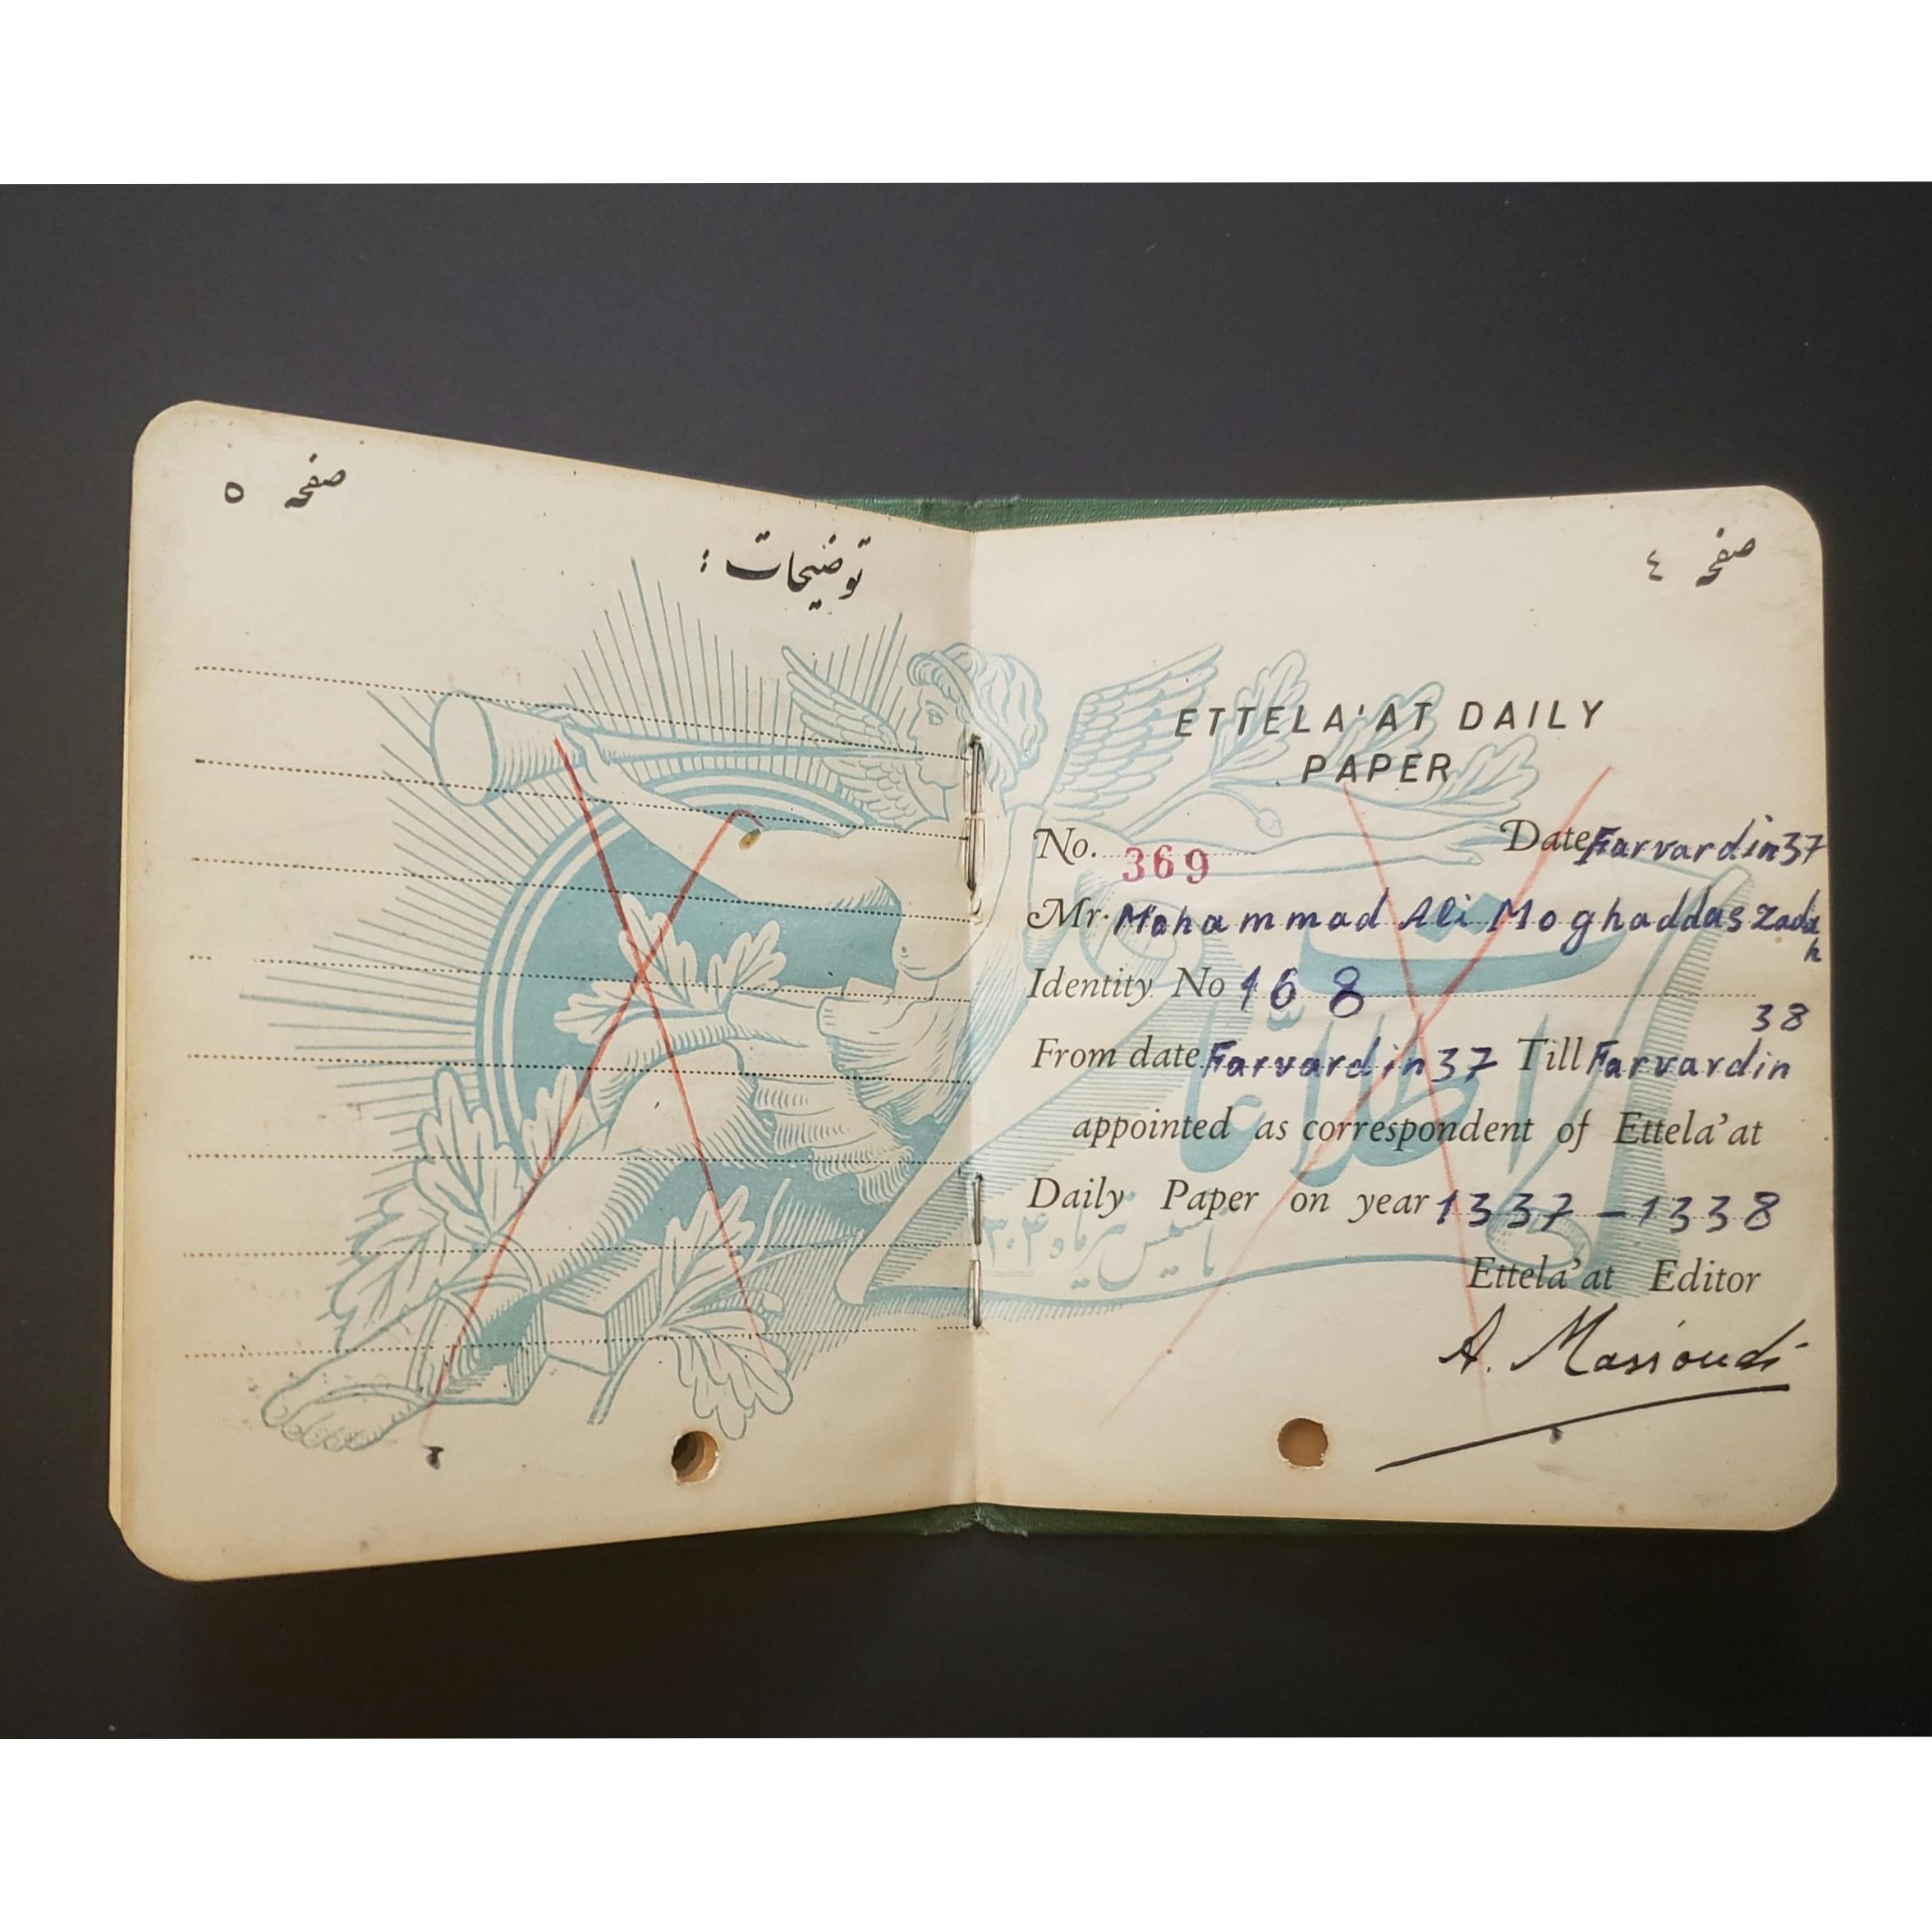 صفحه ٤
ETTELA'AT DAILY
PAPER
No. 369 Date Farvardin 37
Mr. Mohammad Ali Moghaddas Zadah
Identity No 168
38
From date Farvardin 37 Till Farvardin
appointed as correspondent of Ettela'at
Daily Paper on year 1337 - 1338
Ettela'at Editor
A. Massoudi
اطلاعات
تأسیس تیرماه
صفحه ٥
توضیحات :